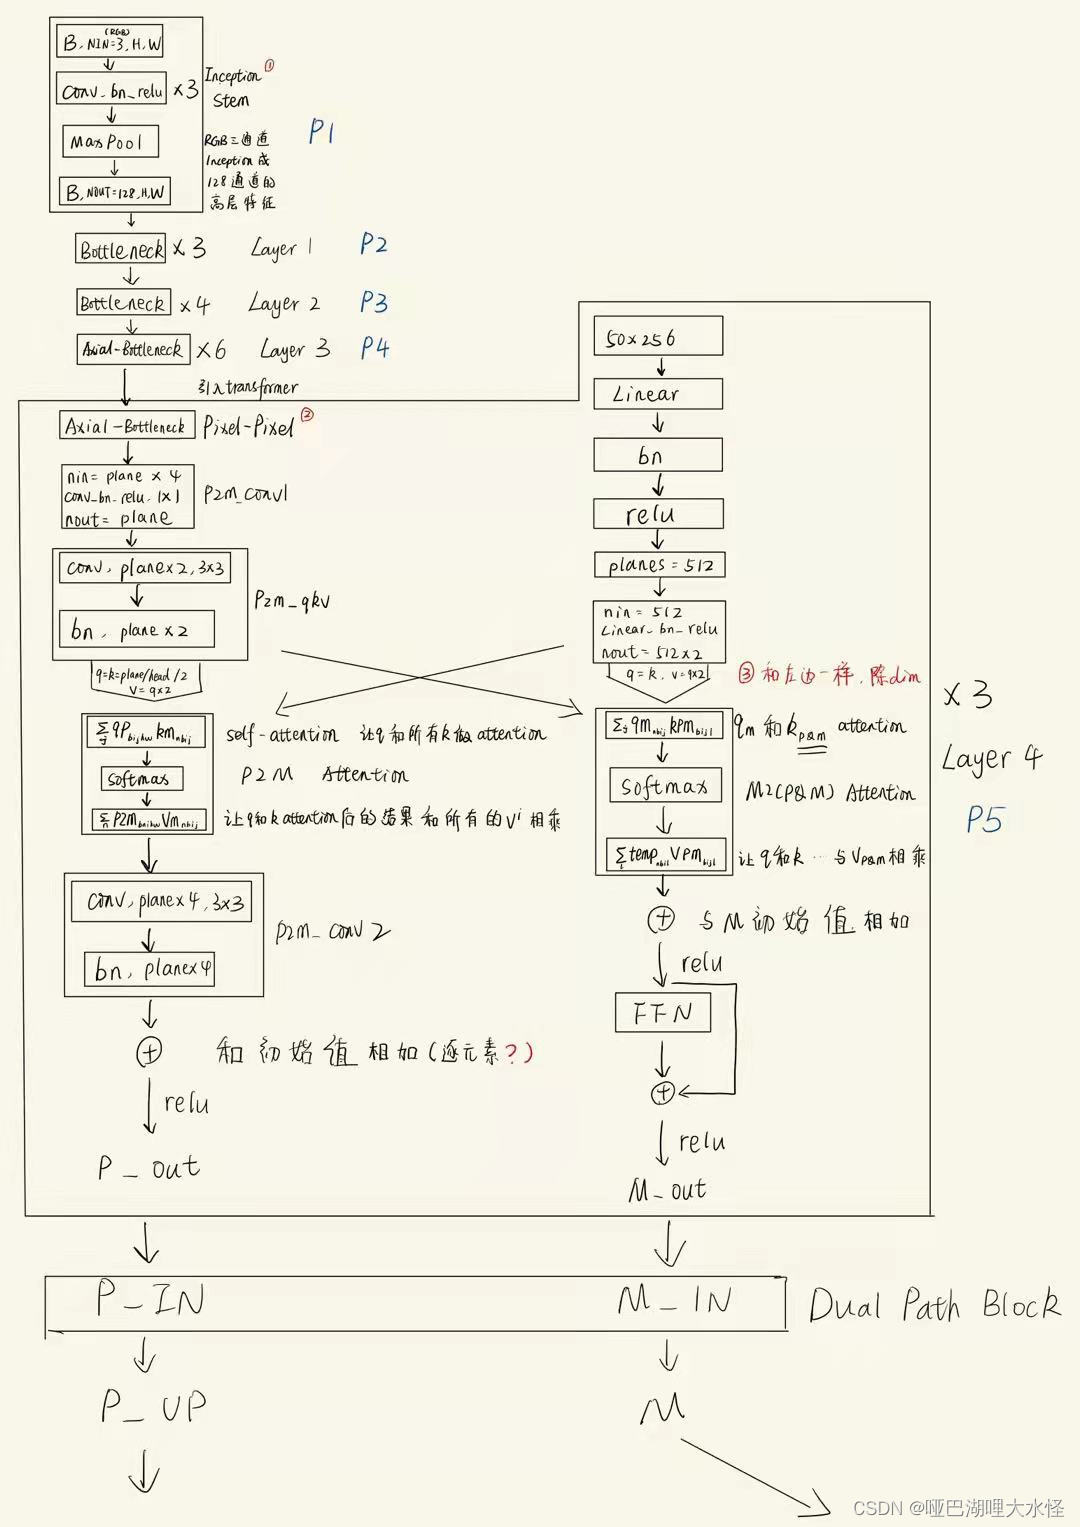 (RGB)
B, NIN=3, H, W
conv_bn_relu ×3
Inception ①
Stem
MaxPool
B, NOUT=128, H, W
RGB三通道
Inception成
128通道的
高层特征
P1
Bottleneck ×3 Layer 1 P2
Bottleneck ×4 Layer 2 P3
Axial-Bottleneck ×6 Layer 3 P4
引入transformer
Axial-Bottleneck Pixel-Pixel ②
nin= plane × 4
conv_bn_relu, 1×1
nout= plane
P2m_conv1
conv, plane×2, 3×3
bn, plane×2
P2m_qkv
q=k=plane/head/2
v= q×2
∑j qPbijhw kmnbij
softmax
∑n P2mbnihw Vmnbij
self-attention 让q和所有k做attention
P2M Attention
让q和k attention后的结果和所有的Vⁱ相乘
conv, plane×4, 3×3
bn, plane×4
P2m_conv2
+
和初始值相加(逐元素?)
relu
P_out
50×256
Linear
bn
relu
planes = 512
nin = 512
Linear_bn_relu
nout = 512×2
q=k, v=q×2
③ 和左边一样, 除dim
∑j qmnbij kpmbijl
softmax
∑l tempnbil VPmbijl
qm 和 kp&m attention
M2(P&M) Attention
让q和k … 与VP&m相乘
+
与M初始值相加
relu
FFN
+
relu
M_out
×3
Layer 4
P5
P_IN M_IN Dual Path Block
P_UP M
CSDN @哑巴湖哩大水怪